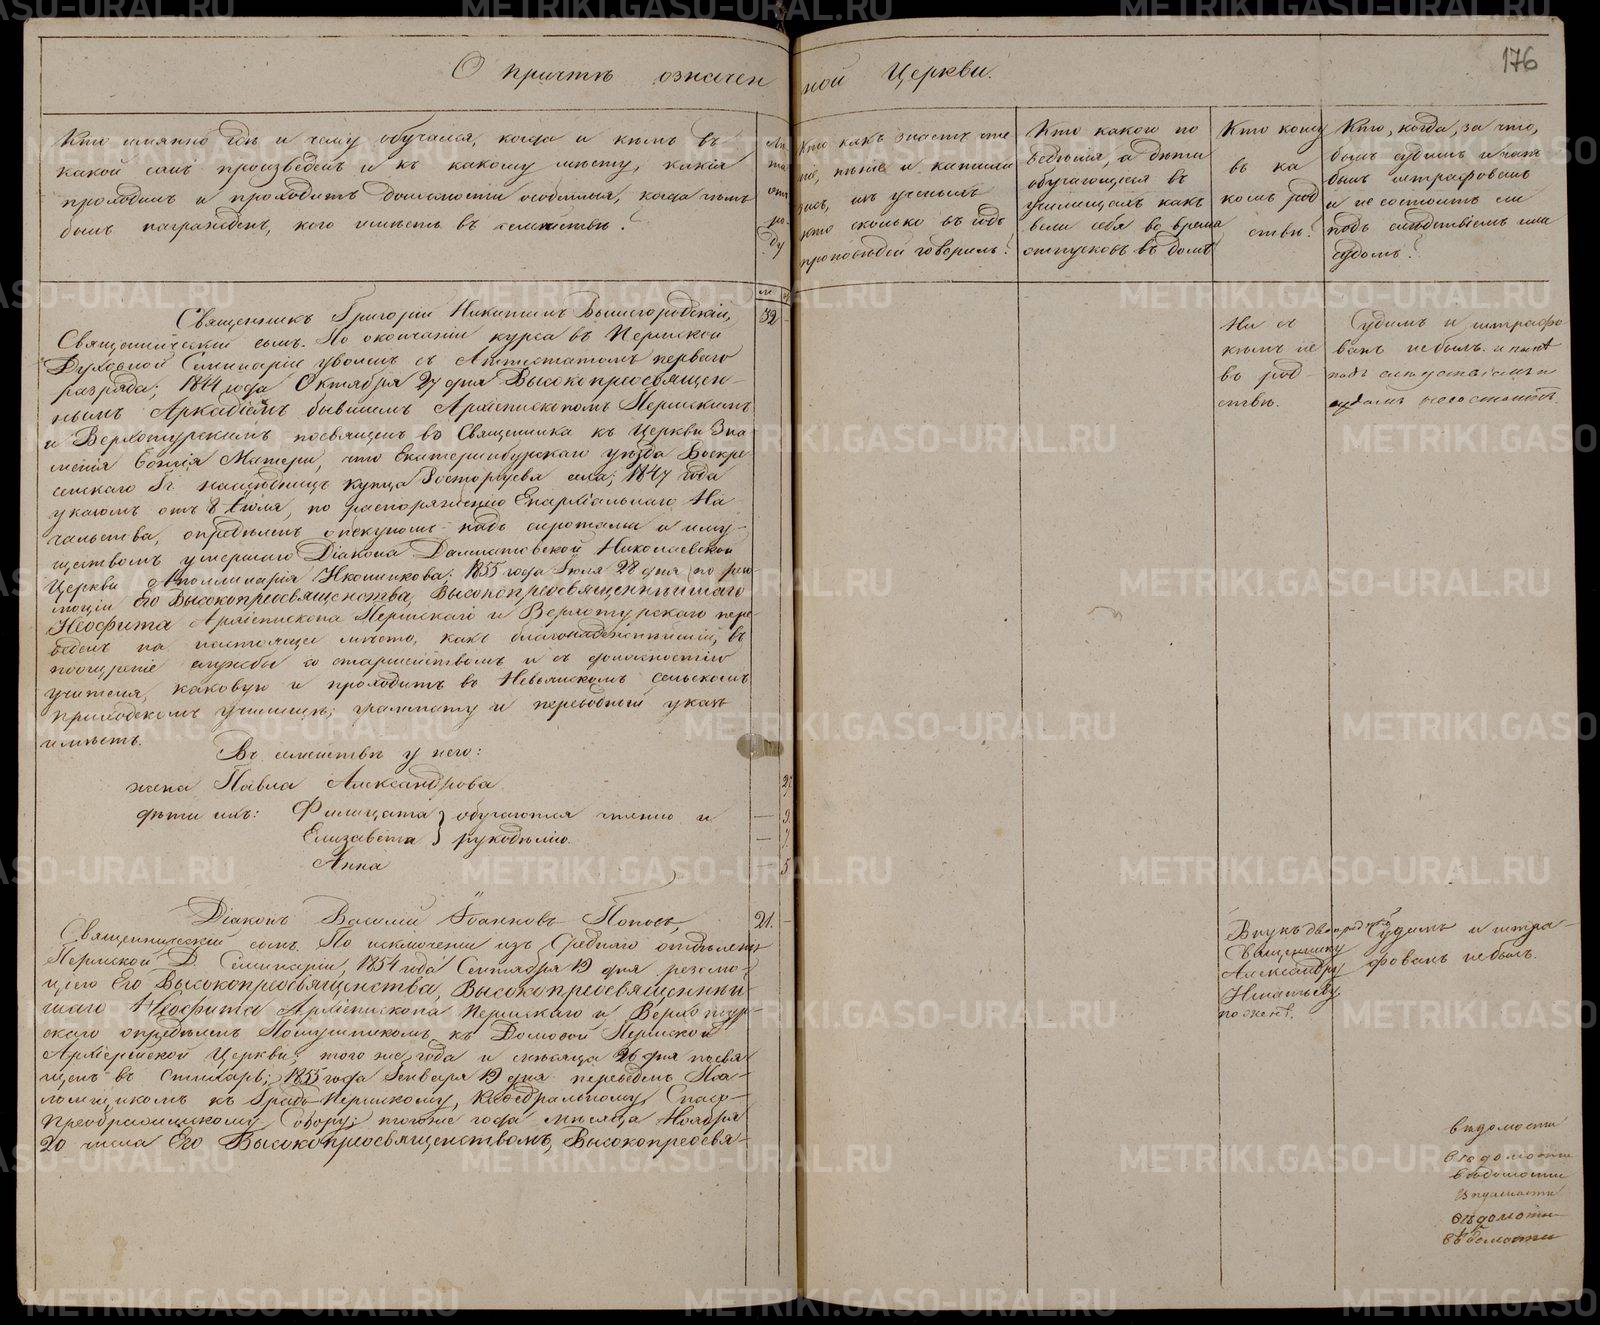 О причтѣ означенной Церкви.
176
Кто имянно гдѣ и чему обучался, когда и кѣмъ въ
какой санъ произведенъ и къ какому мѣсту, какія
проходилъ и проходитъ должности особенныя, когда чѣмъ
былъ награжденъ, кого имѣетъ въ семействѣ?
Лѣ
та
отъ
ро-
ду
Кто какъ знаетъ чте
ніе, пѣніе и катихи
зисъ, изъ ученыхъ
кто сколько въ годъ
проповѣдей говорилъ?
Кто какого по
веденія, а дѣти
обучающіеся въ
училищахъ какъ
вели себя во время
отпусковъ въ домъ
Кто кому
въ ка
комъ род
ствѣ?
Кто, когда, за что,
былъ судимъ и чѣмъ
былъ штрафованъ
и не состоитъ ли
подъ слѣдствіемъ или
судомъ?
м
Священникъ Григорій Никитинъ Вышегородскій, 32
Священническій сынъ. По окончаніи курса въ Пермской
Духовной Семинаріи уволенъ съ Аттестатомъ перваго
разряда; 1844 года Октября 27 дня Высокопреосвящен-
нымъ Аркадіемъ бывшимъ Архіепископомъ Пермскимъ
и Верхотурскимъ посвященъ во Священника къ Церкви Зна
менія Божія Матери, что Екатеринбургскаго уѣзда Воскре
сенскаго Гг. наслѣдницъ купца Расторгуева села; 1847 года
указомъ отъ 8 Іюля, по распоряженію Епархіальнаго На
чальства, опредѣленъ опекуномъ надъ сиротами и иму-
ществомъ умершаго Діакона Далматовской Николаевской
Церкви Аполлинарія Иконникова; 1855 года Іюля 28 дня по резо
люціи Его Высокопреосвященства, Высокопреосвященнѣйшаго
Неофита Архіепископа Пермскаго и Верхотурскаго пере-
веденъ на настоящее мѣсто, какъ благонадежнѣйшій, въ
поощреніе службы со старшинствомъ и съ должностію
учителя, каковую и проходитъ въ Невьянскомъ сельскомъ
приходскомъ училищѣ; грамматту и переводный указъ
имѣетъ.
Въ семействѣ у него:
жена Павла Александрова 27
дѣти ихъ: Филицата } обучаются чтенію и — 9.
Елизавета } рукодѣлію. — 7
Анна 5
Ни съ
кѣмъ не
въ род-
ствѣ.
Судимъ и штрафо
ванъ не былъ. и нынѣ
подъ слѣдствіемъ и
судомъ не состоитъ.
Діаконъ Василій Іоанновъ Поповъ, 21.
Священническій сынъ. По исключеніи изъ Средняго отдѣленія
Пермской Д. Семинаріи, 1854 года Сентября 19 дня резолю-
ціею Его Высокопреосвященства, Высокопреосвященнѣй-
шаго Неофита Архіепископа Пермскаго и Верхотур-
скаго опредѣленъ Псаломщикомъ къ Домовой Пермской
Архіерейской Церкви; того же года и мѣсяца 26 дня посвя
щенъ въ Стихарь; 1855 года Генваря 19 дня переведенъ Пса-
ломщикомъ къ Градо Пермскому, Каѳедральному Спасо-
Преображенскому Собору; тогоже года мѣсяца Ноября
20 числа Его Высокопреосвященствомъ, Высокопреосвя-
Внукъ двоюродн
Священнику
Александру
Игнатьеву
по женѣ.
Судимъ и штра-
фованъ не былъ.
вѣдомости
вѣдомости
вѣдомости
вѣдомости
вѣдомости
вѣдомости
METRIKI.GASO-URAL.RU